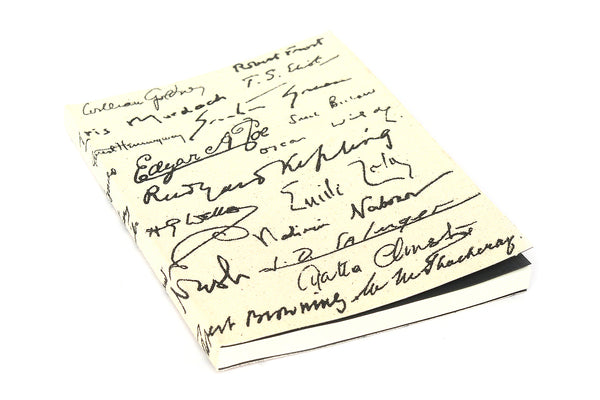 Robert Frost
William Golding T.S. Eliot
Iris Murdoch Graham Greene
Ernest Hemingway Saul Bellow
Edgar A Poe Oscar Wilde.
Rudyard Kipling
H G Wells Emile Zola
Vladimir Nabokov
J.D. Salinger
Agatha Christie
Robert Browning W M Thackeray.